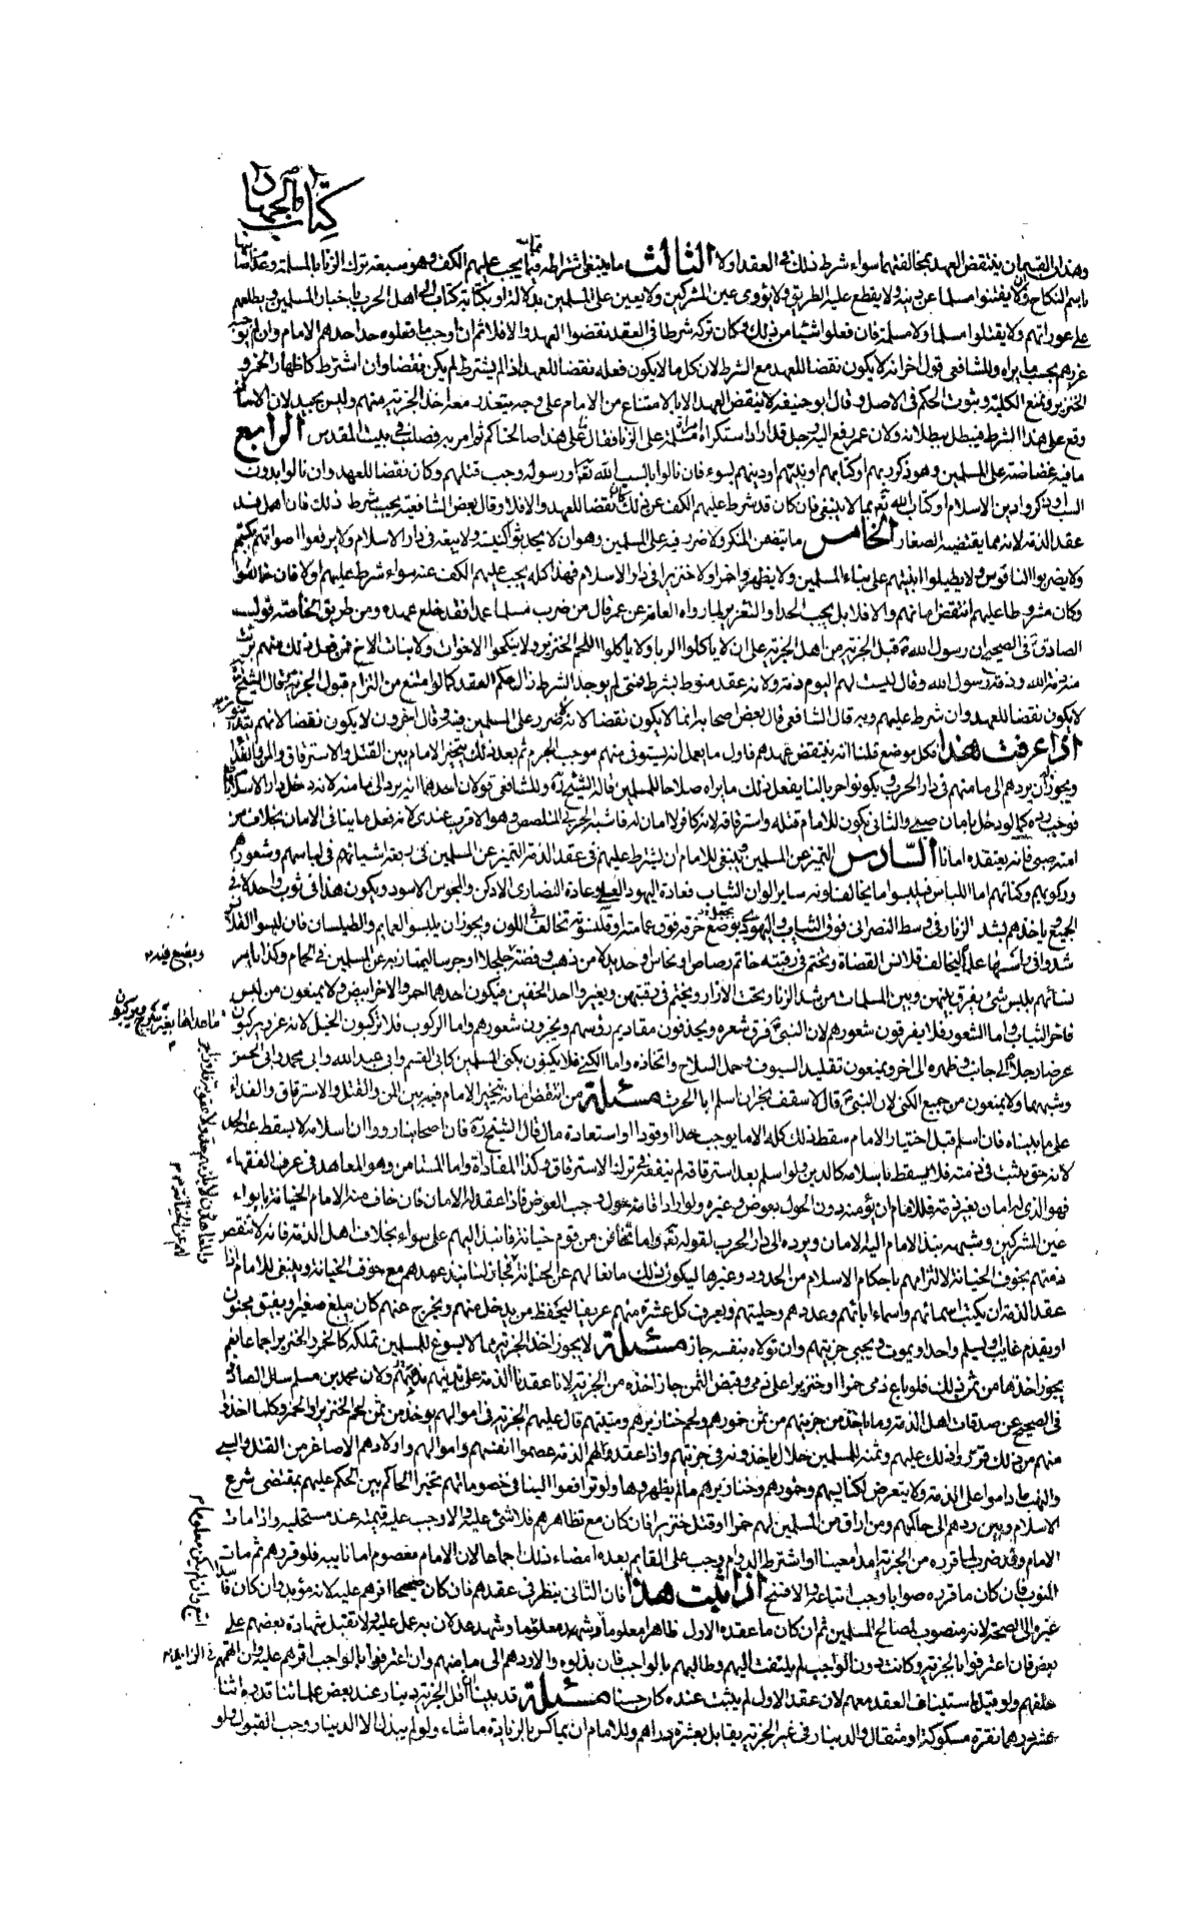 كتاب الجهاد
وهذان القسمان ينتقض العهد بمخالفتهما سواء شرط ذلك في العقد اولا الثالث ما ينبغي اشتراطه فيما يجب عليهم الكف وهو سبعة ترك الزنا بالمسلمة وعدم اصابتها
باسم النكاح وان لا يفتنوا مسلما عن دينه ولا يقطع عليه الطريق ولا يؤوى عين المشركين ولا يعين على المسلمين بدلالة او بكتابة كتاب الى اهل الحرب باخبار المسلمين ويطلعهم
على عوراتهم ولا يقتلوا مسلما ولا مسلمة فان فعلوا شيئا من ذلك وكان تركه شرطا في العقد نقضوا العهد والا فلا ثم ان اوجب ما فعلوه حدا حدهم الامام وان لم يوجبه
عزرهم بحسب ما يراه وللشافعي قول اخر انه لا يكون نقضا للعهد مع الشرط لان كل ما لا يكون فعله نقضا للعهد اذا لم يشترط لم يكن نقضا وان اشترط كاظهار الخمر و
الخنزير وقال ابو حنيفة لا ينتقض العهد الا بالامتناع من الامام على وجه يتعذر معه اخذ الجزية منهم وليس بجيد لان الامان
وقع على هذا الشرط فيبطل ببطلانه ولان عمر رفع اليه رجل قد اراد استكراه امراة مسلمة على الزنا فقال ما على هذا صالحناكم ثم امر به فصلب في بيت المقدس الرابع
ما فيه غضاضة على المسلمين وهو ذكر ربهم او كتابهم او نبيهم او دينهم بسوء فان نالوا بالسب الله تعالى او رسوله وجب قتلهم وكان نقضا للعهد وان نالوا بدون
السب او ذكروا دين الاسلام او كتاب الله تعالى بما لا ينبغي فان كان قد شرط عليهم الكف عن ذلك كان نقضا للعهد والا فلا وقال بعض الشافعية يجب شرط ذلك فان اهل
عقد الذمة لانه مما يقتضيه الصغار الخامس ما يتضمن المنكر ولا ضرر فيه على المسلمين وهو ان لا يحدثوا كنيسة ولا بيعة في دار الاسلام ولا يرفعوا اصواتهم بكتبهم
ولا يضربوا الناقوس ولا يطيلوا ابنيتهم على بناء المسلمين ولا يظهروا خمرا ولا خنزيرا في دار الاسلام فهذا كله يجب عليهم الكف عنه سواء شرط عليهم اولا فان خالفوا
وكان مشروطا عليهم انتقض امانهم والا فلا بل يجب الحد او التعزير لما رواه العامة عن عمر قال من ضرب مسلما عمدا فقد خلع عهده ومن طريق الخاصة قول
الصادق في الصحيح ان رسول الله قبل الجزية من اهل الجزية على ان لا ياكلوا الربا ولا ياكلوا لحم الخنزير ولا ينكحوا الاخوات ولا بنات الاخ فمن فعل ذلك منهم برئت
منه ذمة الله وذمة رسول الله وقال ليست لهم اليوم ذمة ولانه عقد منوط بشرط فمتى لم يوجد الشرط زال حكم العقد كما لو امتنع من التزام قبول الجزية وقال الشيخ
لا يكون نقضا للعهد وان شرط عليهم وبه قال الشافعي قال بعض اصحابه انما لا يكون نقضا لانه لا ضرر على المسلمين فيه وقال اخرون لا يكون نقضا لانهم
اذا عرفت هذا فكل موضع قلنا انه ينتقض عهدهم فاول ما يعمل انه يستوفى منهم موجب الجرم ثم بعد ذلك يتخير الامام بين القتل والاسترقاق والمن والفداء
ويجوز ان يردهم الى مامنهم في دار الحرب ويكونوا حربا لنا يفعل ذلك ما يراه صلاحا للمسلمين قاله الشيخ وللشافعي قولان احدهما انه يرد الى مامنه لانه دخل دار الاسلام
فوجب رده كما لو دخل بامان صبي والثاني يكون للامام قتله واسترقاقه لانه كافر لا امان له فاشبه الحربي المتلصص وهو الاقرب عندي لانه فعل ما ينافي الامان بخلاف من
امنه صبي فانه يعتقده امانا السادس التميز عن المسلمين وينبغي للامام ان يشترط عليهم في عقد الذمة التميز عن المسلمين في اربعة اشياء في لباسهم وشعورهم
وركوبهم وكناهم اما اللباس فيلبسوا ما يخالف لونه ساير الوان الثياب فعادة اليهود العسلي وعادة النصارى الادكن والمجوس الاسود ويكون هذا في ثوب واحد لا في
الجميع وياخذهم بشد الزنار في وسط النصراني فوق الثياب واليهودي بوضع خرقة فوق عمامته او قلنسوة تخالف في اللون ويجوز ان يلبسوا العمايم والطيلسان فان لبسوا القلانس
شدوا في راسها علما ليخالف قلانس القضاة ويختم في رقبته خاتم رصاص او نحاس او حديد لا من ذهب وفضة او جلجلا او جرسا ليمتاز به عن المسلمين في الحمام وكذا يامر
نسائهم بلبس شئ يفرق بينهن وبين المسلمات من شد الزنار تحت الازار ويختم في رقبتهن ويغيروا احد الخفين فيكون احدهما احمر والاخر ابيض ولا يمنعون من لبس
فاخر الثياب واما الشعور فلا يفرقون شعورهم لان النبي فرق شعره ويحذفون مقاديم رؤسهم ويجزون شعورهم واما الركوب فلا تركبون الخيل لانه عز ويركبون
عرضا رجلاه الى جانب وظهره الى اخر ويمنعون تقليد السيوف وحمل السلاح واتخاذه واما الكنى فلا يكنون بكنى المسلمين كابي القسم وابي عبد الله وابي محمد وابي الحسن
وشبهها ولا يمنعون من جميع الكنى لان النبي قال لاسقف نجران اسلم ابا الحرث مسئلة من انتقض امانه تخير الامام فيه بين المن والقتل والاسترقاق والفداء
على ما بيناه فان اسلم قبل اختيار الامام سقط ذلك كله الا ما يوجب حدا او قودا او استعادة مال قال الشيخ فان اصحابنا رووا ان اسلامه لا يسقط عنه الحد
لانه حق يثبت في ذمته فلا يسقط باسلامه كالدين ولو اسلم بعد استرقاقه لم ينفعه في ترك الاسترقاق وكذا المفاداة واما المستامن وهو المعاهد في عرف الفقهاء
فهو الذي له امان بغير ذمة فللامام ان يؤمنه دون الحول بعوض وغيره ولو اراد اقامة حول وجب العوض فاذا عقد له الامان فان خاف منه الامام الخيانة بايواء
عين المشركين وشبهه نبذ الامام اليه الامان ويرده الى دار الحرب لقوله تعالى واما تخافن من قوم خيانة فانبذ اليهم على سواء بخلاف اهل الذمة فانه لا تنقض
ذمتهم بخوف الخيانة لالتزامهم باحكام الاسلام من الحدود وغيرها ليكون ذلك مانعا لهم عن الخيانة فجاز لنا نبذ عهدهم مع خوف الخيانة وينبغي للامام اذا
عقد الذمة ان يكتب اسمائهم واسماء ابائهم وعددهم وحليتهم ويعرف كل عشرة منهم عريفا ليحفظ من يدخل منهم ويخرج عنهم كان يبلغ صغير او يفيق مجنون
او يقدم غايب او يسلم واحد او يموت ويجبي جزيتهم وان تولاه بنفسه جاز مسئلة لا يجوز اخذ الجزية مما لا يسوغ للمسلمين تملكه كالخمر والخنزير اجماعا نعم
يجوز اخذها من ثمن ذلك فلو باع ذمي خمرا او خنزيرا على ذمي وقبض الثمن جاز اخذه من الجزية لانا عقدنا الذمة على تدينهم بدينهم ولان محمد بن مسلم سئل الصادق
في الصحيح عن صدقات اهل الذمة وما ياخذ من جزيتهم من ثمن خمورهم ولحم خنازيرهم وميتتهم قال عليهم الجزية في اموالهم يوخذ من ثمن لحم الخنزير او الخمر وكلما اخذوا
منهم من ذلك فوزر ذلك عليهم وثمنه للمسلمين حلال ياخذونه في جزيتهم واذا عقدوا لهم الذمة عصموا انفسهم واموالهم واولادهم الاصاغر من القتل والسبي
والنهب ما داموا على الذمة ولا يتعرض لكنايسهم وخمورهم وخنازيرهم ما لم يظهروها ولو ترافعوا الينا في خصوماتهم تخير الحاكم بين الحكم عليهم بمقتضى شرع
الاسلام وبين ردهم الى حاكمهم ومن اراق من المسلمين لهم خمرا او قتل خنزيرا فان كان مع تظاهرهم فلا شئ عليه والا وجب عليه قيمته عند مستحليه واذا مات
الامام وقد ضرب لما قرره من الجزية امدا معينا او اشترط الدوام وجب على القايم بعده امضاء ذلك اجماعا لان الامام معصوم اما نايبه فلو قررهم ثم مات
المنوب فان كان ما قرره صوابا وجب اتباعه والا فسخ اذا ثبت هذا فان الثاني ينظر في عقدهم فان كان صحيحا اقرهم عليه لانه مؤبد وان كان فاسدا
غيره الى الصحة لانه منصوب لمصالح المسلمين ثم ان كان ما عقده الاول ظاهرا معلوما وشهد به عدلان به عمل عليه ولا تقبل شهادة بعضهم على
بعض فان اعترفوا بالجزية وكانت دون الواجب لم يلتفت اليهم وطالبهم بالواجب فان بذلوه والا ردهم الى مامنهم وان اعترفوا بالواجب اقرهم عليه وان اتهمهم في الزايد
حلفهم ولو قيل باستيناف العقد معهم لان عقد الاول لم يثبت عنده كان حسنا مسئلة قد بينا ان اقل الجزية دينار عند بعض علمائنا قدره اثنا
عشر درهما نقرة مسكوكة او مثقال والدينار في غير الجزية يقابل بعشرة دراهم وللامام ان يماكس بالزيادة ما شاء ولو لم يبذل الا الدينار وجب القبول ولو